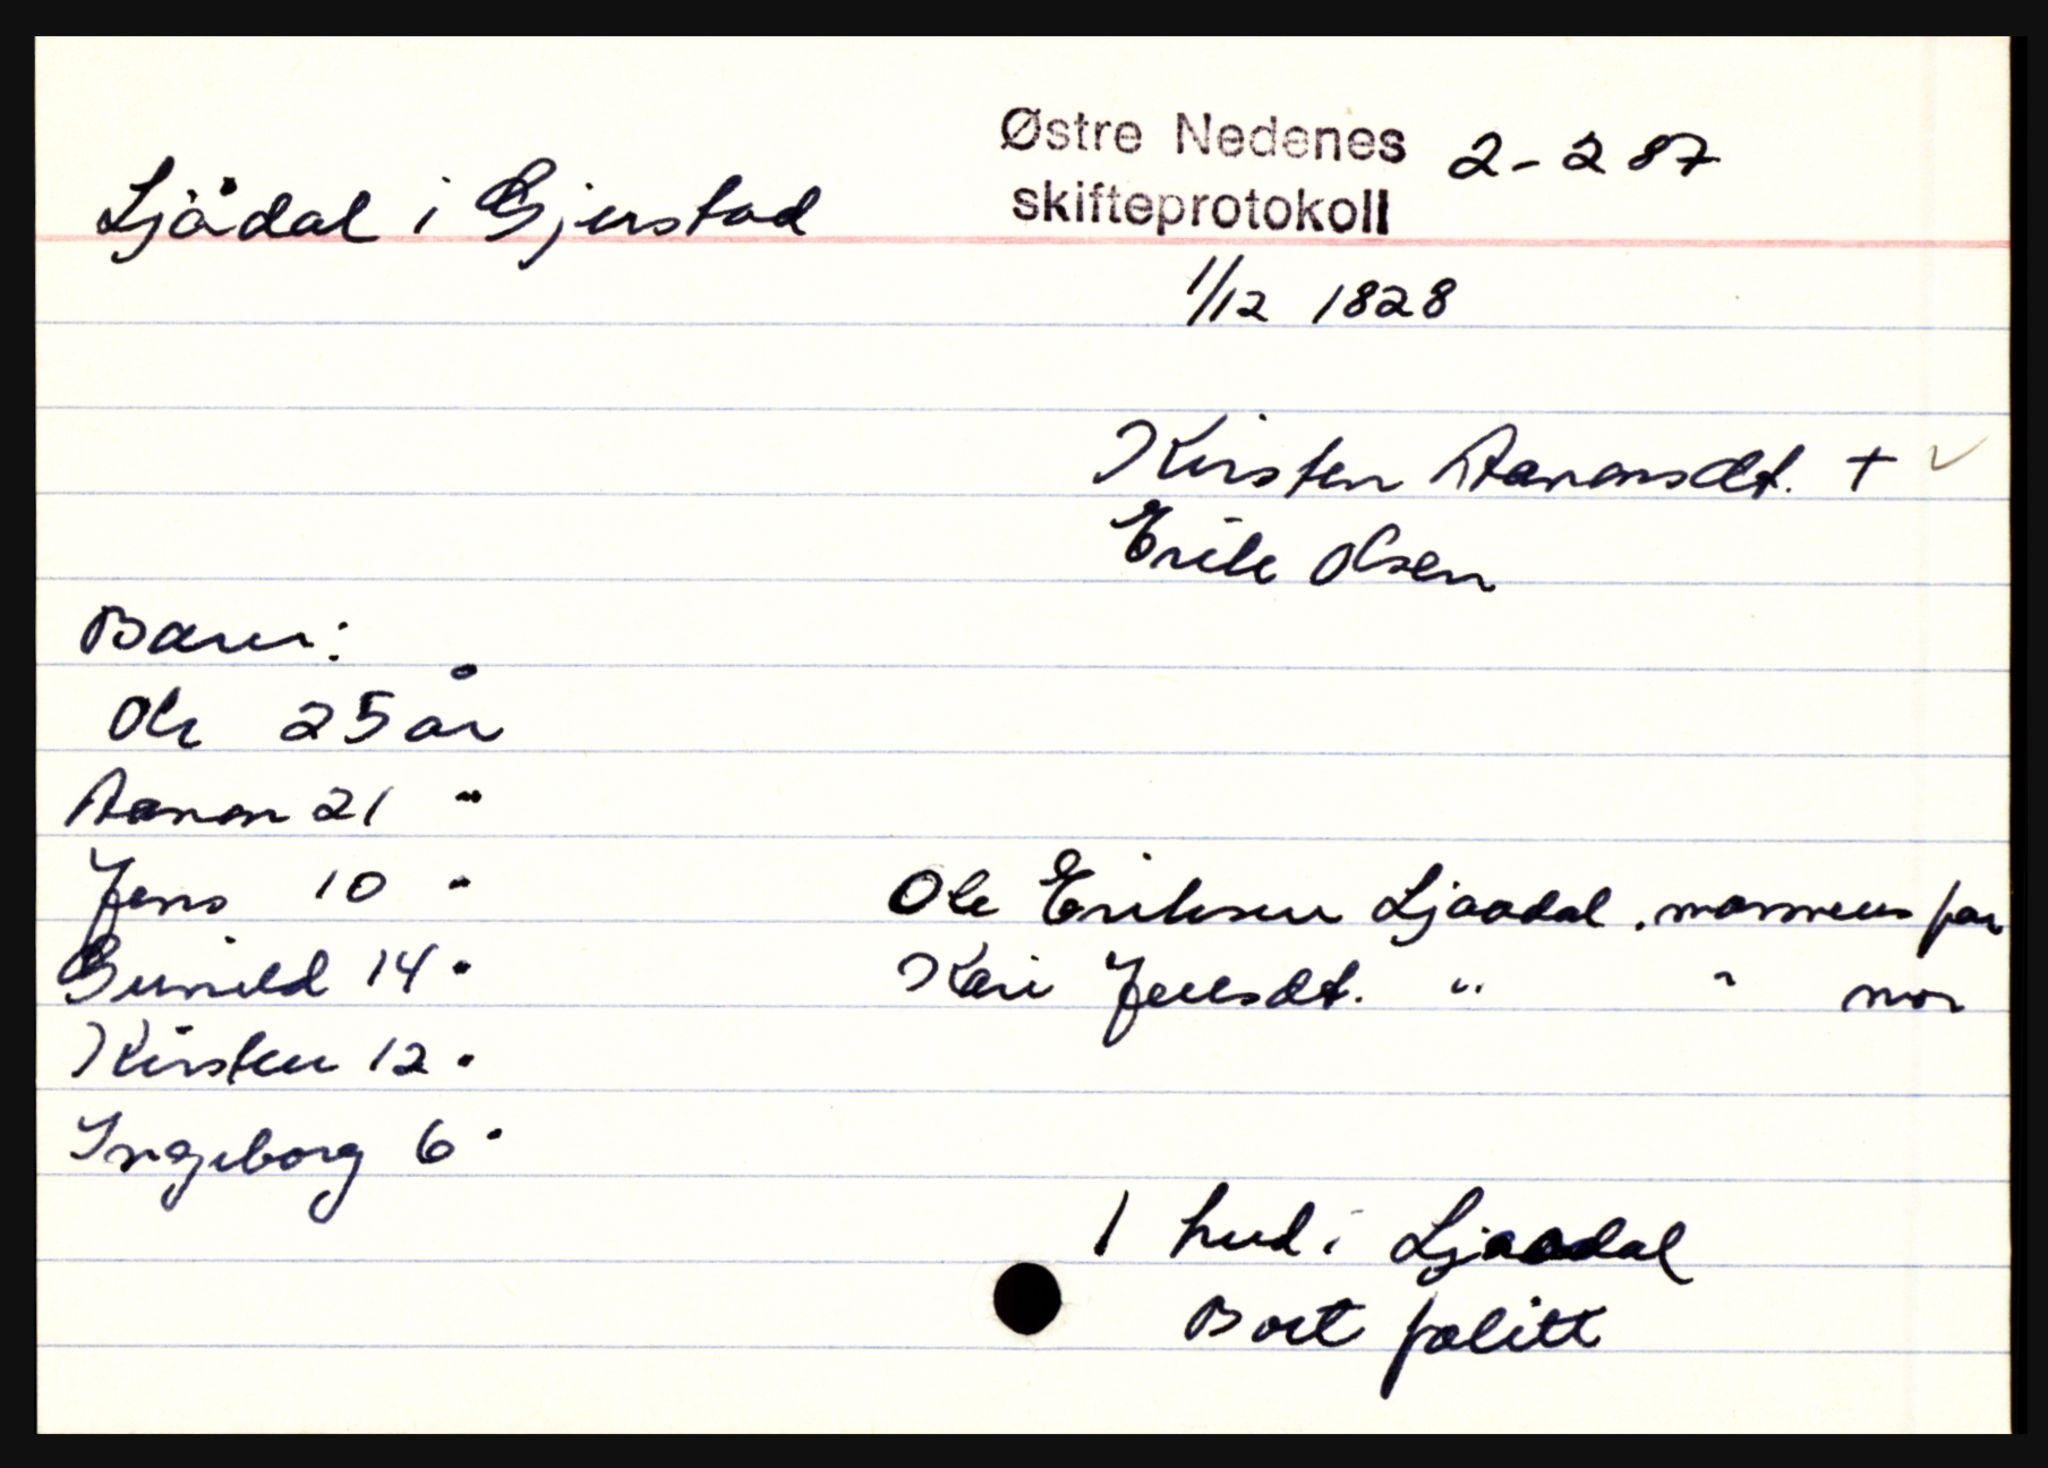 Østre Nedenes 2-287
skifteprotokoll
Ljådal i Gjerstad
1/12 1828
Kirsten Aanonsdt. +
Erik Olsen
Barn:
Ole 25 år
Aanon 21 "
Jens 10 "
Ole Eriksen Ljaadal, mannens far
Gunild 14 "
Kari Jensdt. " " mor
Kirsten 12 "
Ingeborg 6 "
1 hud i Ljaadal
Bort